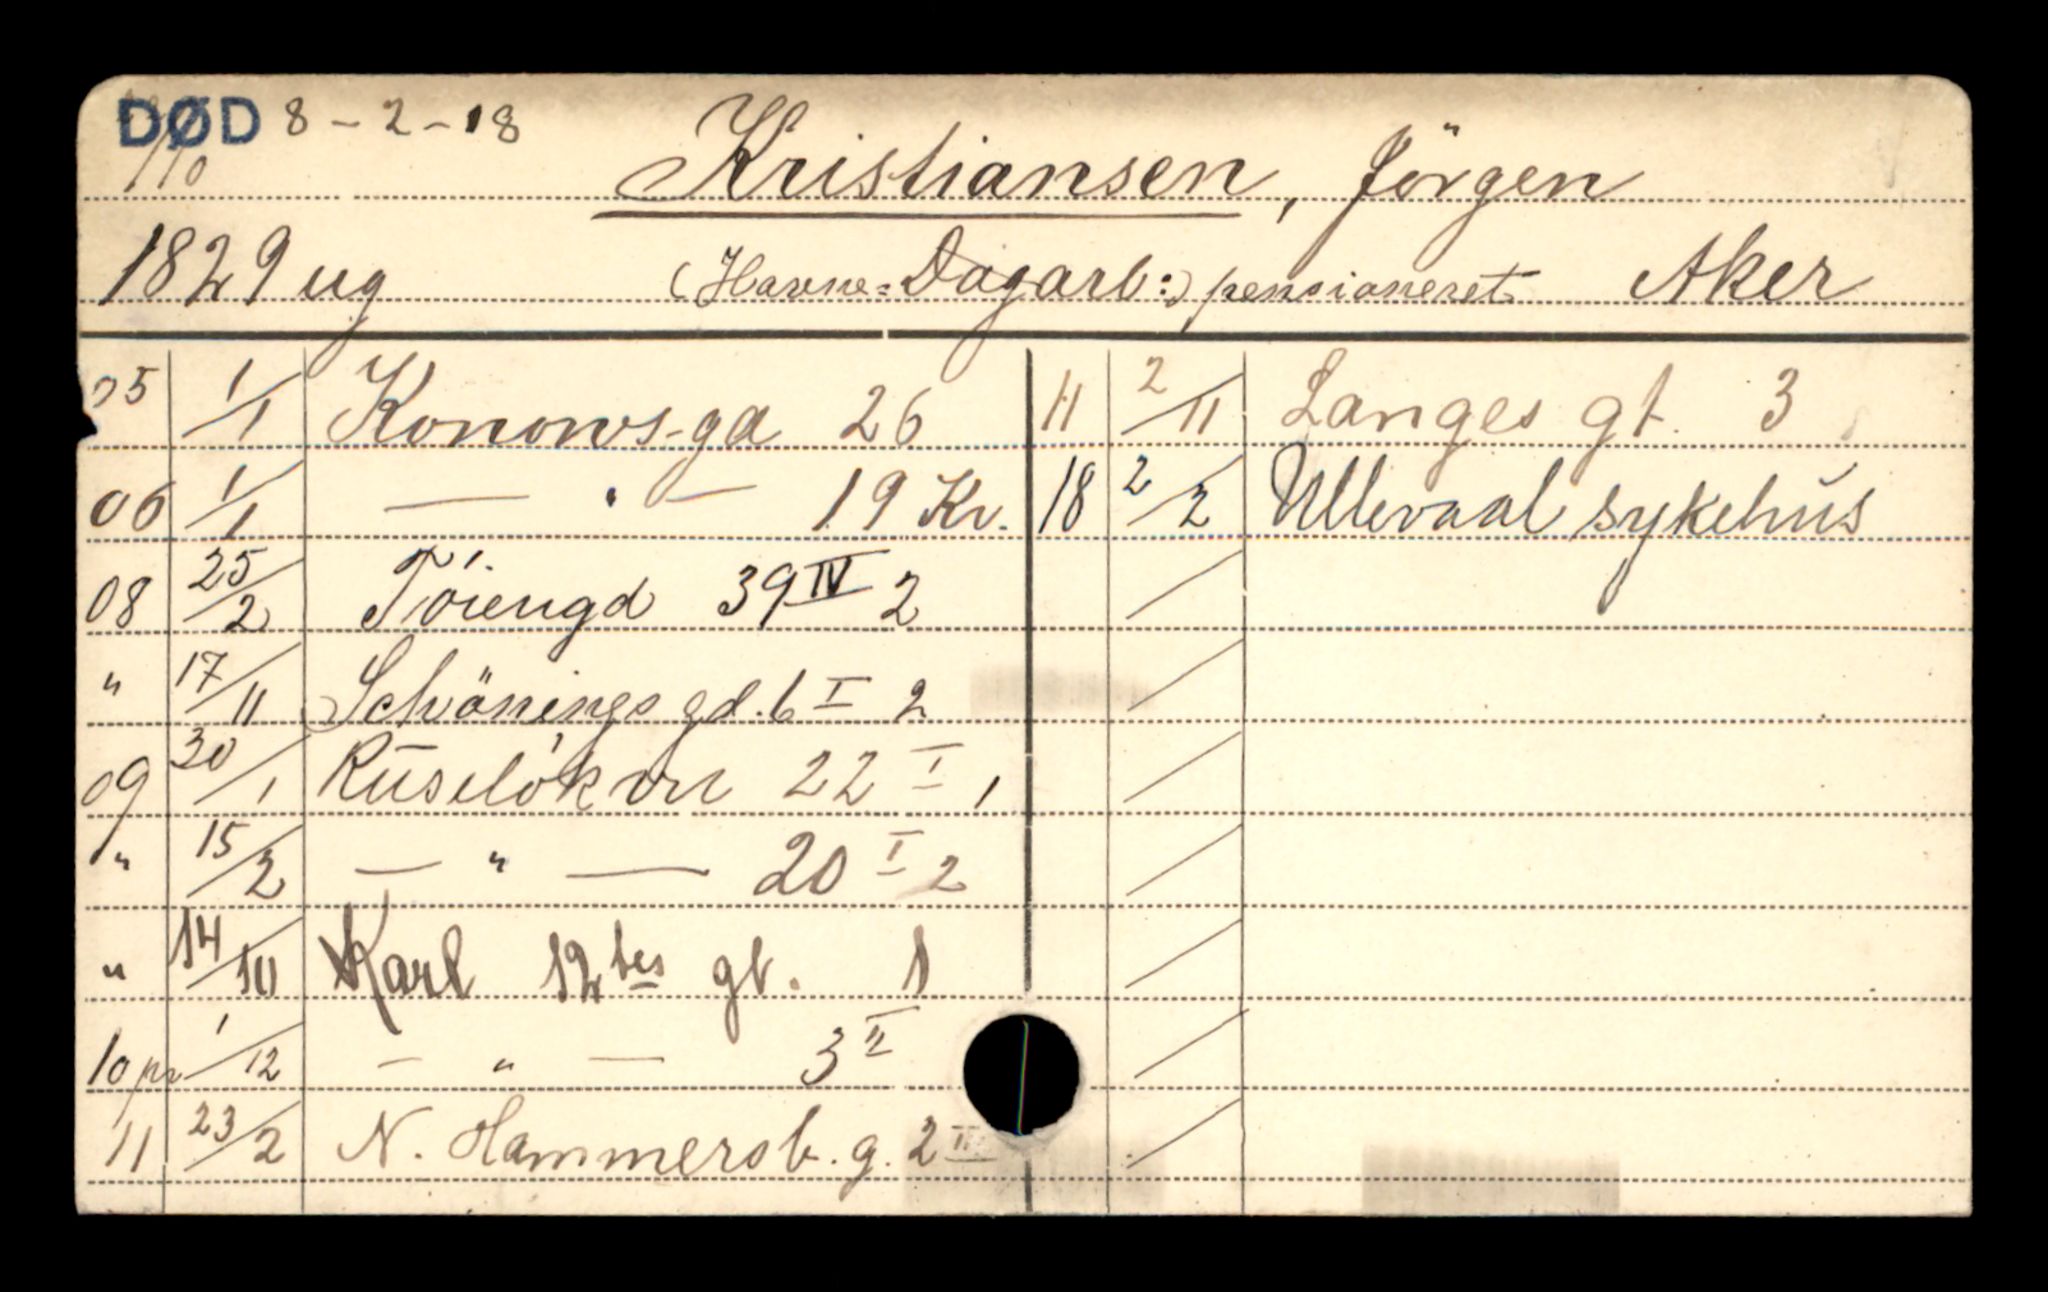 DØD 8-2-18
1/10
Kristiansen, Jörgen
1829 ug (Havne=Dagarb:) pensioneret Aker
05 1/1 Konows-gd 26
06 1/1 — " — 19 Kr.
08 25/2 Töiengd 39 IV 2
" 17/11 Schönings gd. 6 I 2
09 30/1 Ruselökvn 22 I 1
" 15/2 — " — 20 I 2
" 14/10 Karl 12tes gt. 1
10 pr 1/12 — " — 3 II
11 23/2 N. Hammersb. g. 2
11 2/11 Langes gt. 3
18 2/2 Ullevaal sykehus